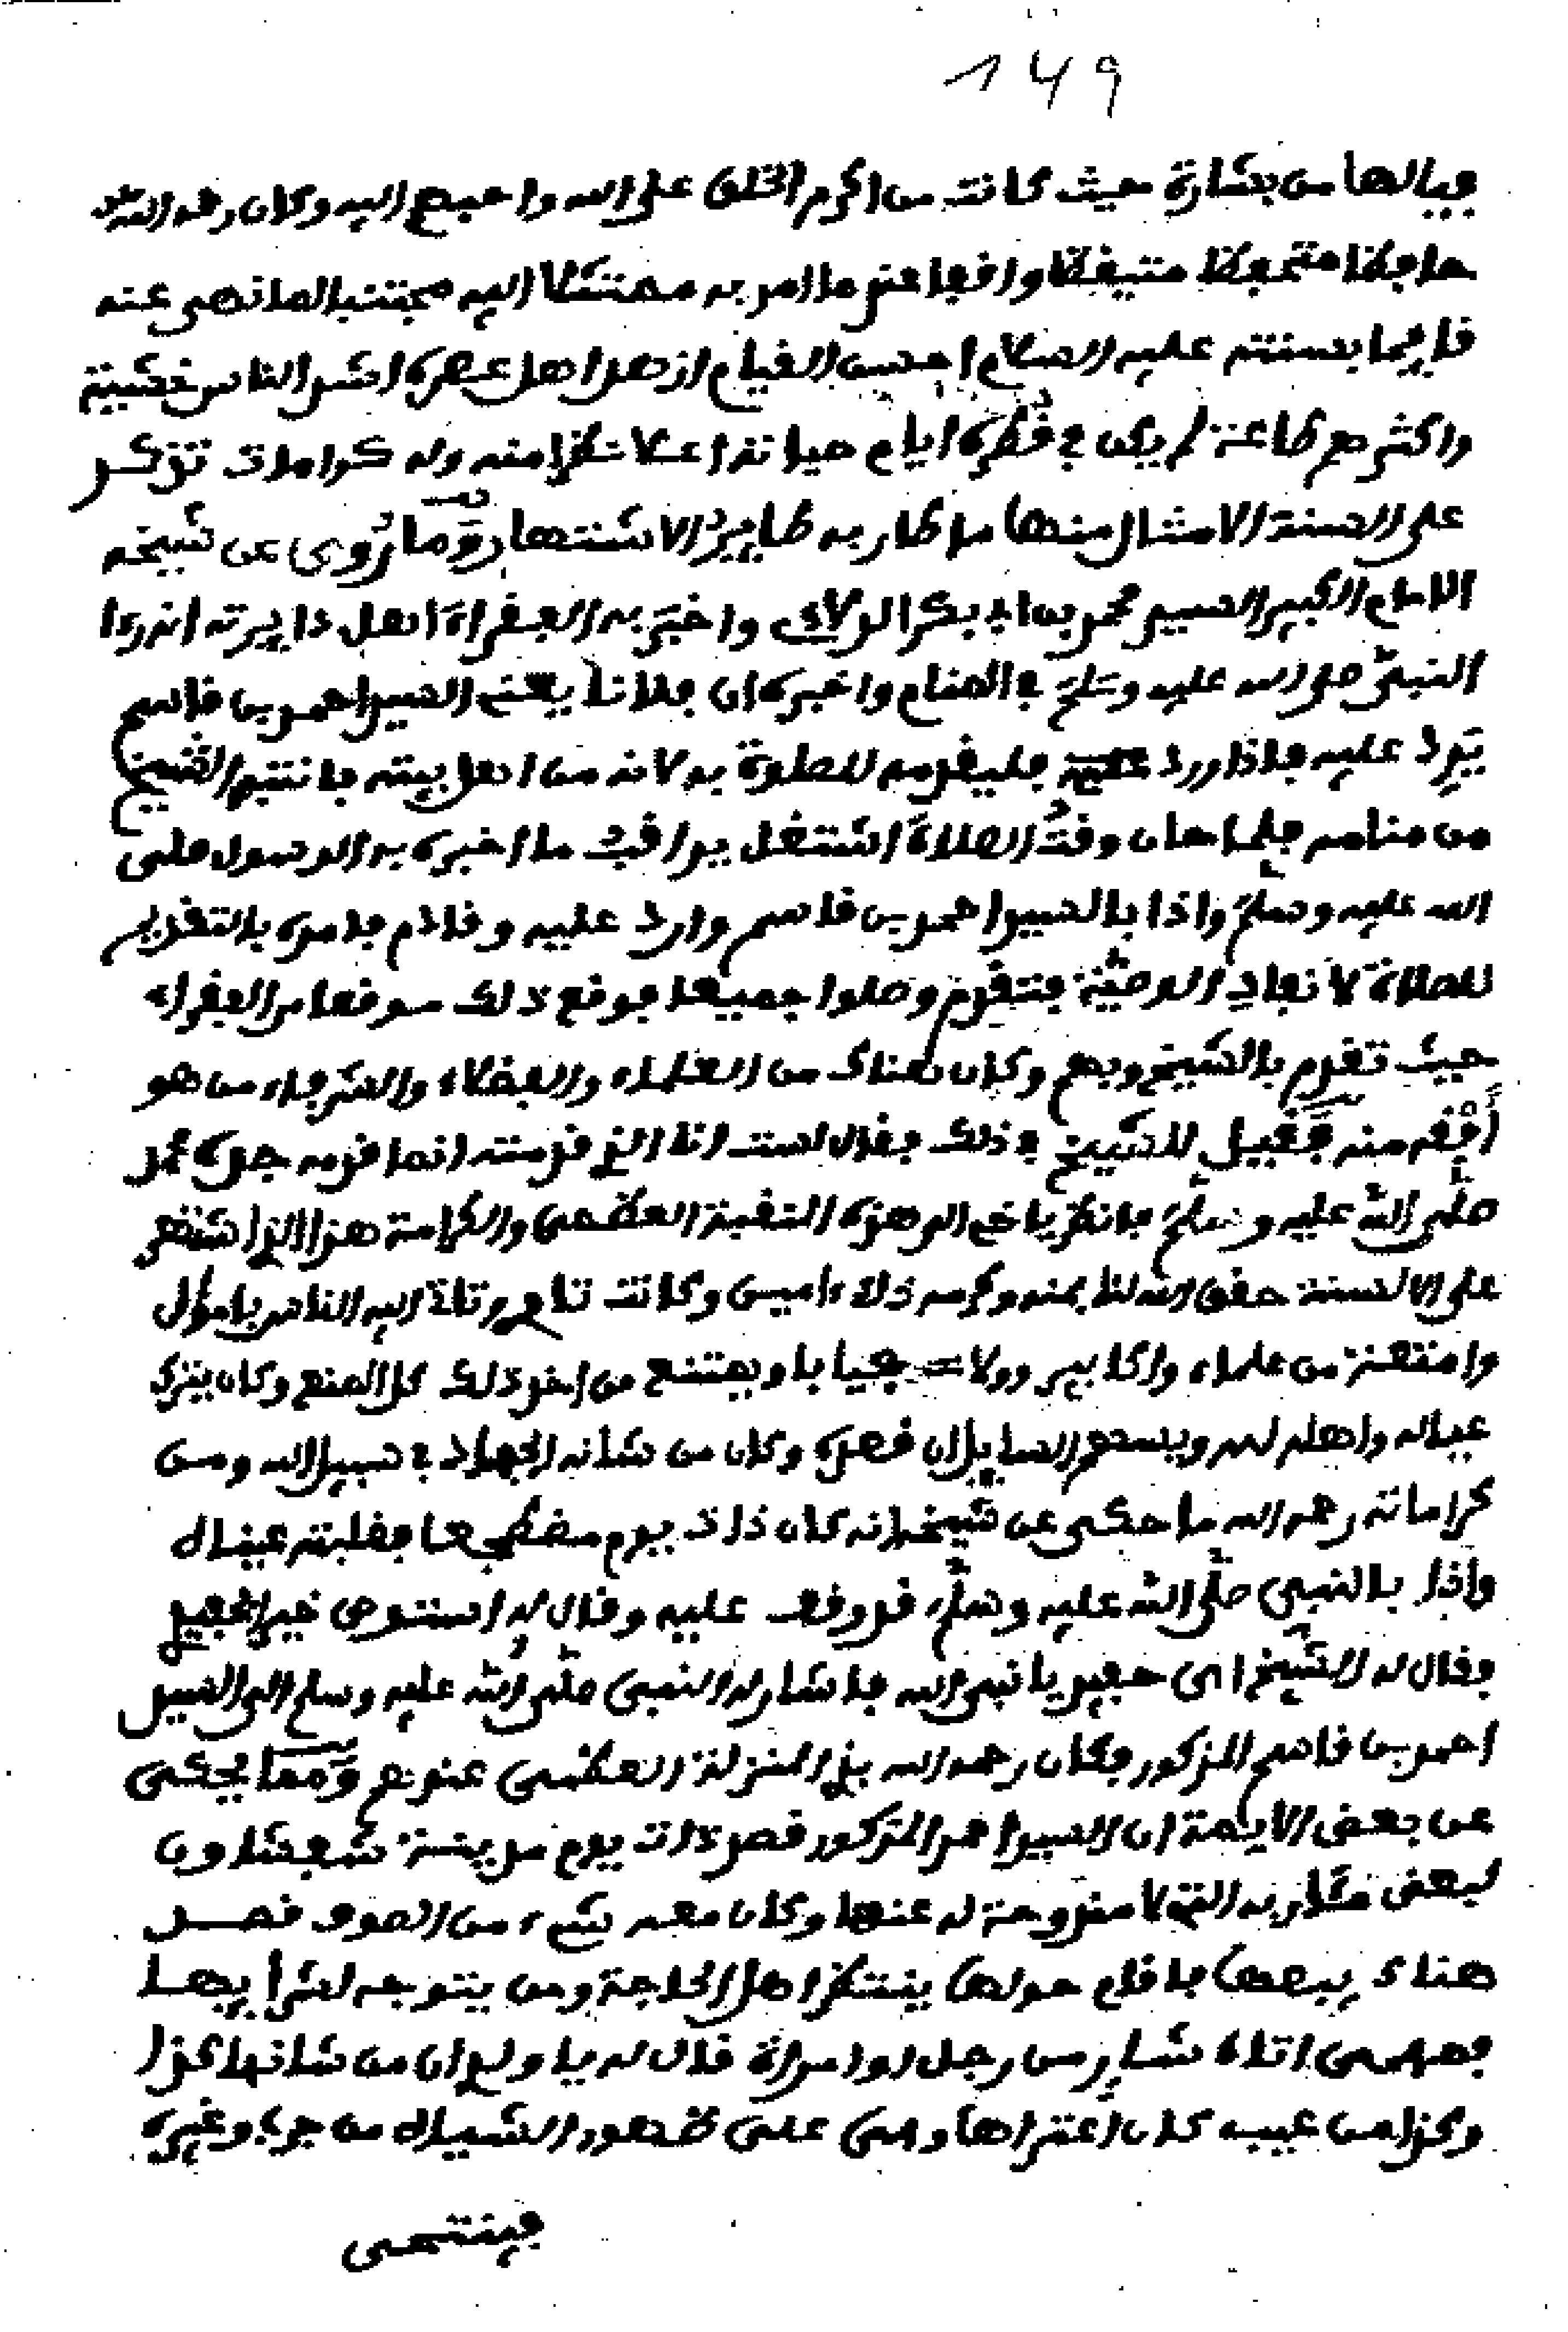 149
فيالها من بشارة حيث كانت من اكرم الخلق على الله واحبهم اليه وكان رحمه الله
حافظا متحفظا متيقظا واقفا عند ما امر به ممتثلا اليه مجتنبا لما نهى عنه
قايما بسنته عليه السلام احسن القيام ازهد اهل عصره اشد الناس خشية
واكثرهم طاعة لم يكن في قطره ايام حياته اعلا نظرا منه وله كرامات تذكر
على السنة الامثال منها ما طار به طاير الاشتهار وَما رُوي عن شيخه
الامام الكبير السيد محمد بن ابي بكر الدلاءي واخبَر به الفقراءَ اهل دايرته انه رءا
النبيَّ صلى الله عليه وسَلمَ في المنام واخبره ان فلانا يعني السيد احمد بن قاسم
يَرِد عليه فاذا ورد فليقدمه للصلوة به لانه من اهل بيته فانتبه الشيخ
من منامه فلما حان وقتُ الصلاة اشتغل يراقب ما اخبره به الرسول صلى
الله عليه وسلمَ واذا بالسيد احمد بن قاسم وارد عليه وقادم فامره بالتقديم
للصلاة لانفاذِ الوصيَّة فتقدم وصلوا جميعا فوقع ذلك موقعا من الفقراء
حيث تقدم بالشيخ وبهم وكان هناك من العلماء والفضلاء والشرفاء من هو
أفْقه منه فَقيل للشيخ في ذلك فقال لست انا الذي قدمته انما قدمه جده محمد
صلَّى اللهُ عليه وسلمَ فانظر يا اخي الى هذه النقبة العظمى والكرامة هذا الذي اشتهر
على الالسنة حقق الله لنا بمنه وكرمه ذلك ءاميين وكانت تاتي اليه الناس باموال
وامتعة من علماء واكابير وولاة فيابا ويمتنع من اخذ ذلك كل المنع وكان يترك
عياله واهله لله ويسعى السايل ان قصده وكان من شانه الجهاد في سبيل الله ومن
كراماته رحمه الله ما حكى عن شيخه انه كان ذات يوم مضطجعا فغلبته عيناه
واذا بالنبي صلَّى اللهُ عليه وسلَّمَ قد وقف عليه وقال له استوص خيرا بحفيدي
فقال له الشيخ اي حفيد يا نبي الله فاشار له النبي صلَّى اللهُ عليه وسلم الى السيد
احمد بن قاسم المذكور فكان رحمه الله بهذه المنزلة العظمى عندهم وَمما يحكى
عن بعض الايمة ان السيد احمد المذكور قصد ذات يوم مدينة شفشاون
لبعض مئاربه التي لا مندوحة له عنها وكان معه شيء من الصوف قصد
هناك بيعها فاقام حولها ينتظر اهل الحاجة ومن يتوجه لشرايها
فمهمى اتاه شاير من رجل او امراة قال له يا ولدي ان من شانها كذا
وكذا من عيب كان اعتراها وهي على ظهور الشياه من جرب وغيره
فينتحى